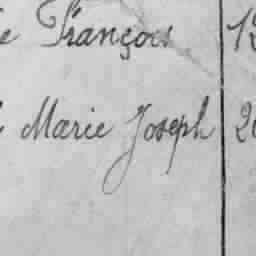 François 1
Marie Joseph 2